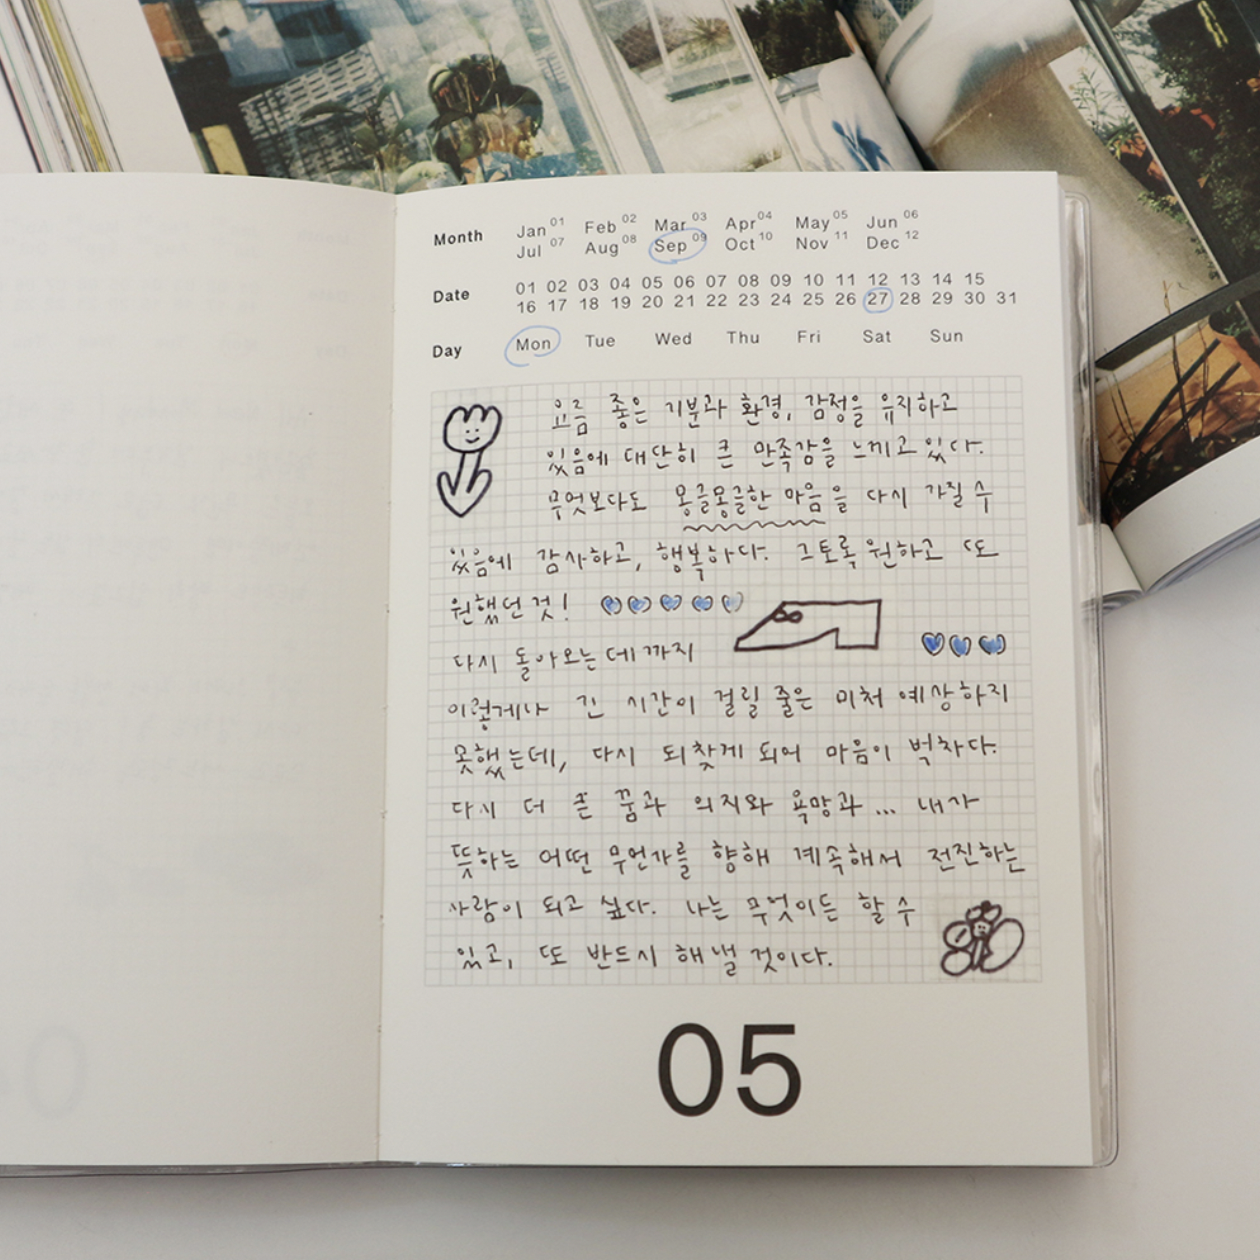 Month Jan 01 Feb 02 Mar 03 Apr 04 May 05 Jun 06
Jul 07 Aug 08 Sep 09 Oct 10 Nov 11 Dec 12
Date 01 02 03 04 05 06 07 08 09 10 11 12 13 14 15
16 17 18 19 20 21 22 23 24 25 26 27 28 29 30 31
Day Mon Tue Wed Thu Fri Sat Sun
요즘 좋은 기분과 환경, 감정을 유지하고
있음에 대단히 큰 만족감을 느끼고 있다.
무엇보다도 몽글몽글한 마음을 다시 가질 수
있음에 감사하고, 행복하다. 그토록 원하고 또
원했던 것!
다시 돌아오는데까지
이렇게나 긴 시간이 걸릴 줄은 미처 예상하지
못했는데, 다시 되찾게 되어 마음이 벅차다.
다시 더 큰 꿈과 의지와 욕망과... 내가
뜻하는 어떤 무언가를 향해 계속해서 전진하는
사람이 되고 싶다. 나는 무엇이든 할 수
있고, 또 반드시 해낼 것이다.
05